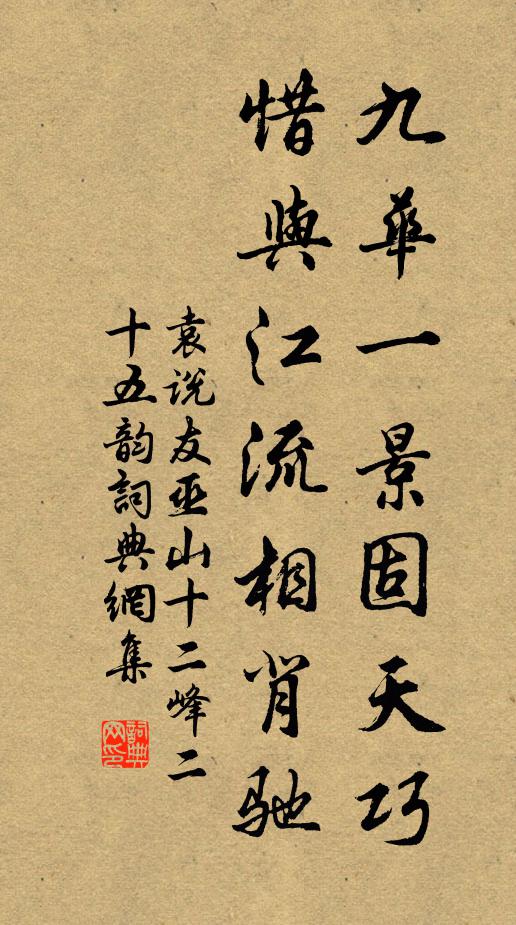 九華一景固天巧
惜與江流相背馳
袁說友巫山十二峰二
十五韵詞典網集
詞典
网印